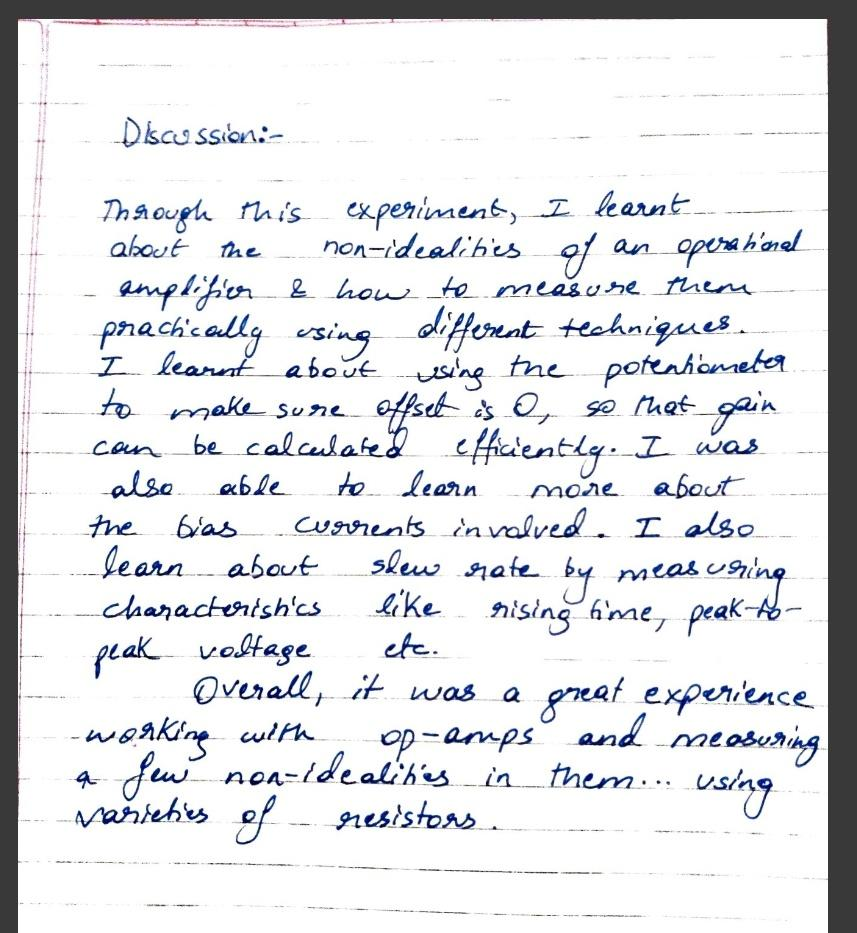 Discussion:-
Through this experiment, I learnt
about the non-idealities of an operational
amplifier & how to measure them
practically using different techniques.
I learnt about using the potentiometer
to make sure offset is 0, so that gain
can be calculated efficiently. I was
also able to learn more about
the bias currents involved. I also
learn about slew rate by measuring
characteristics like rising time, peak-to-
peak voltage etc.
Overall, it was a great experience
working with op-amps and measuring
a few non-idealities in them... using
varieties of resistors.